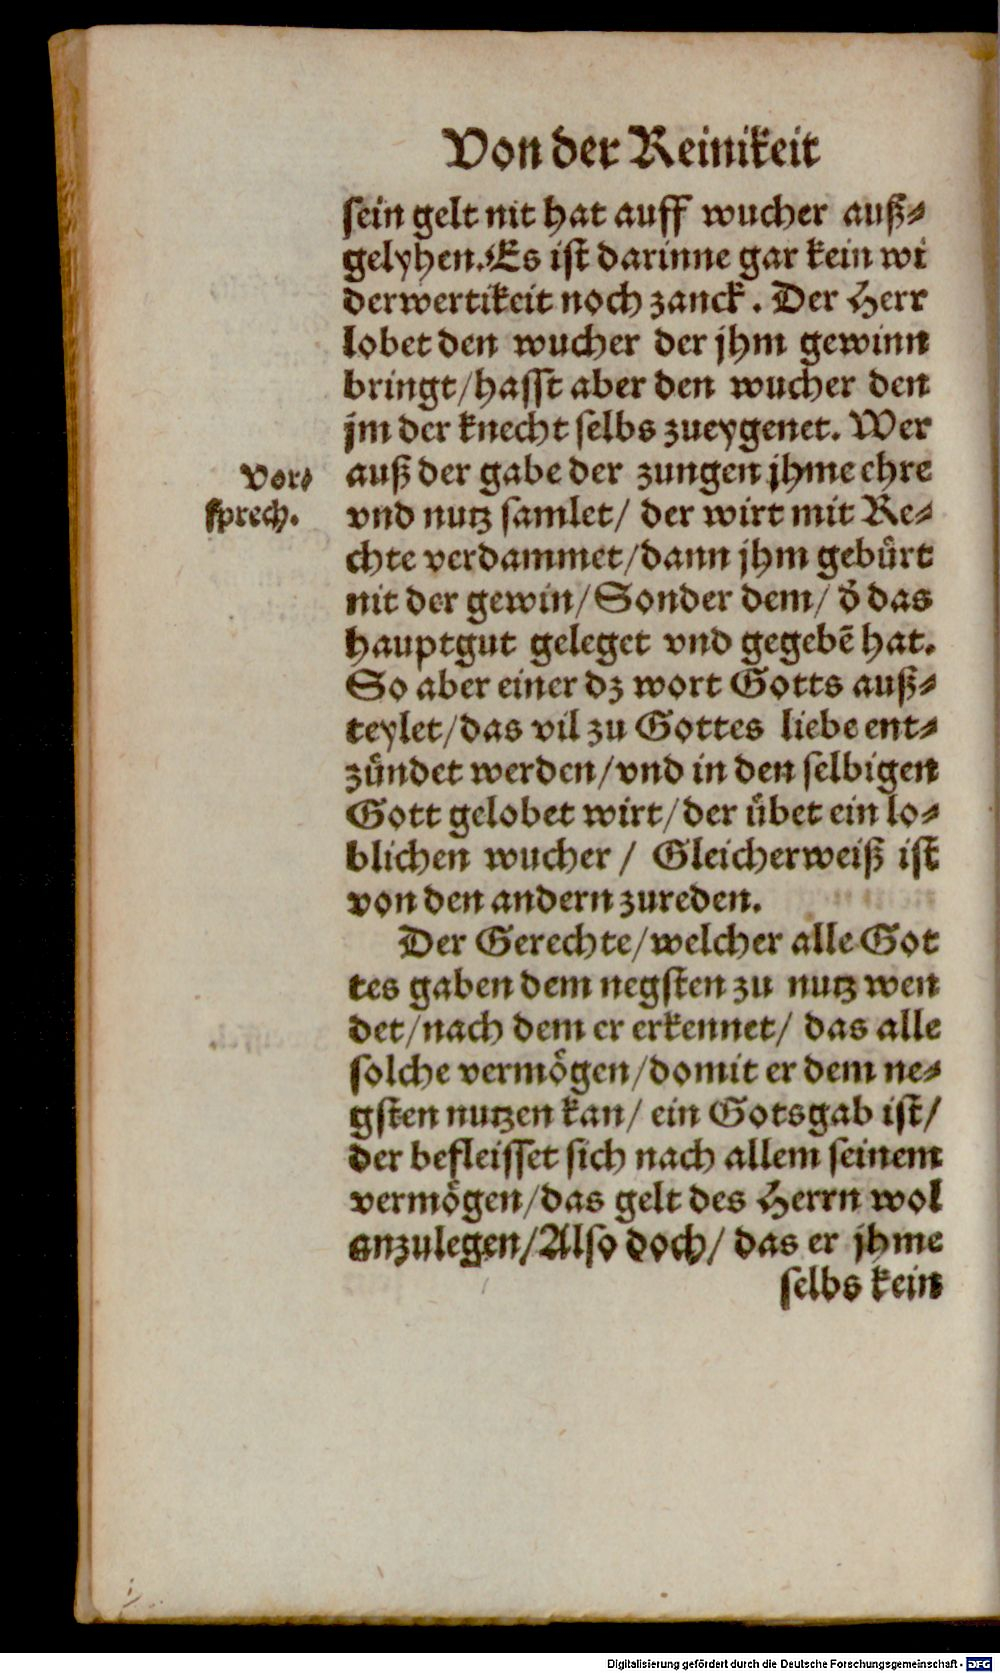 Von der Reinikeit
sein gelt nit hat auff wucher auß⸗
gelyhen. Es ist darinne gar kein wi
derwertikeit noch zanck. Der Herr
lobet den wucher der jhm gewinn
bringt/hasst aber den wucher den
jm der knecht selbs zueygenet. Wer
auß der gabe der zungen jhme ehre
Vor⸗
sprech.
vnd nutz samlet/ der wirt mit Re⸗
chte verdammet/dann jhm gebürt
nit der gewin/Sonder dem/ d̄ das
hauptgut geleget vnd gegebē hat.
So aber einer dz wort Gotts auß⸗
teylet/das vil zu Gottes liebe ent⸗
zündet werden/vnd in den selbigen
Gott gelobet wirt/der übet ein lo⸗
blichen wucher/ Gleicherweiß ist
von den andern zureden.
Der Gerechte/welcher alle Got
tes gaben dem negsten zu nutz wen
det/nach dem er erkennet/ das alle
solche vermögen/domit er dem ne⸗
gsten nutzen kan/ ein Gotsgab ist/
der befleisset sich nach allem seinem
vermögen/das gelt des Herrn wol
anzulegen/Also doch/ das er jhme
selbs kein
Digitalisierung gefördert durch die Deutsche Forschungsgemeinschaft - DFG